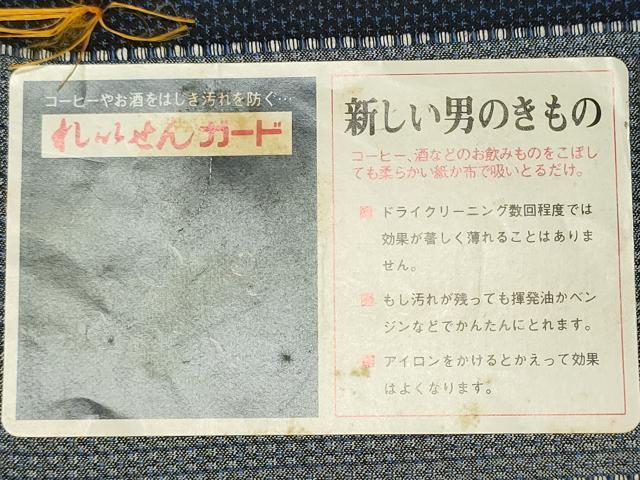 コーヒーやお酒をはじき汚れを防ぐ…
れいせんガード
新しい男のきもの
コーヒー、酒などのお飲みものをこぼし
ても柔らかい紙か布で吸いとるだけ。
ドライクリーニング数回程度では
効果が著しく薄れることはありま
せん。
もし汚れが残っても揮発油かベン
ジンなどでかんたんにとれます。
アイロンをかけるとかえって効果
はよくなります。